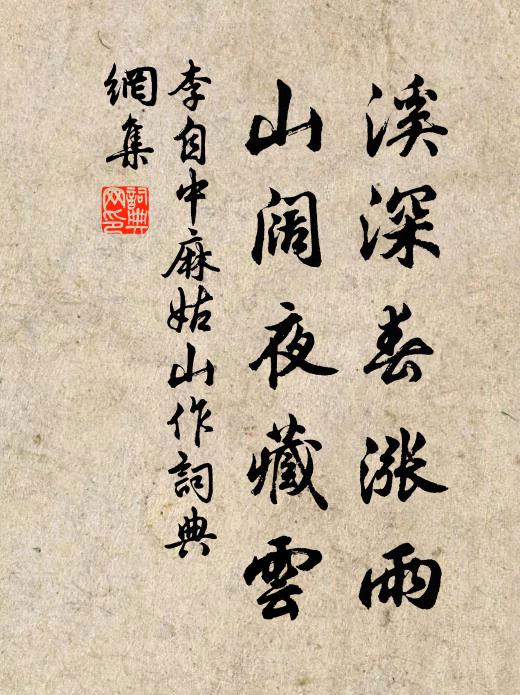 溪深春漲雨
山阔夜藏雲
李自中麻姑山作詞典
網集
詞典
网印